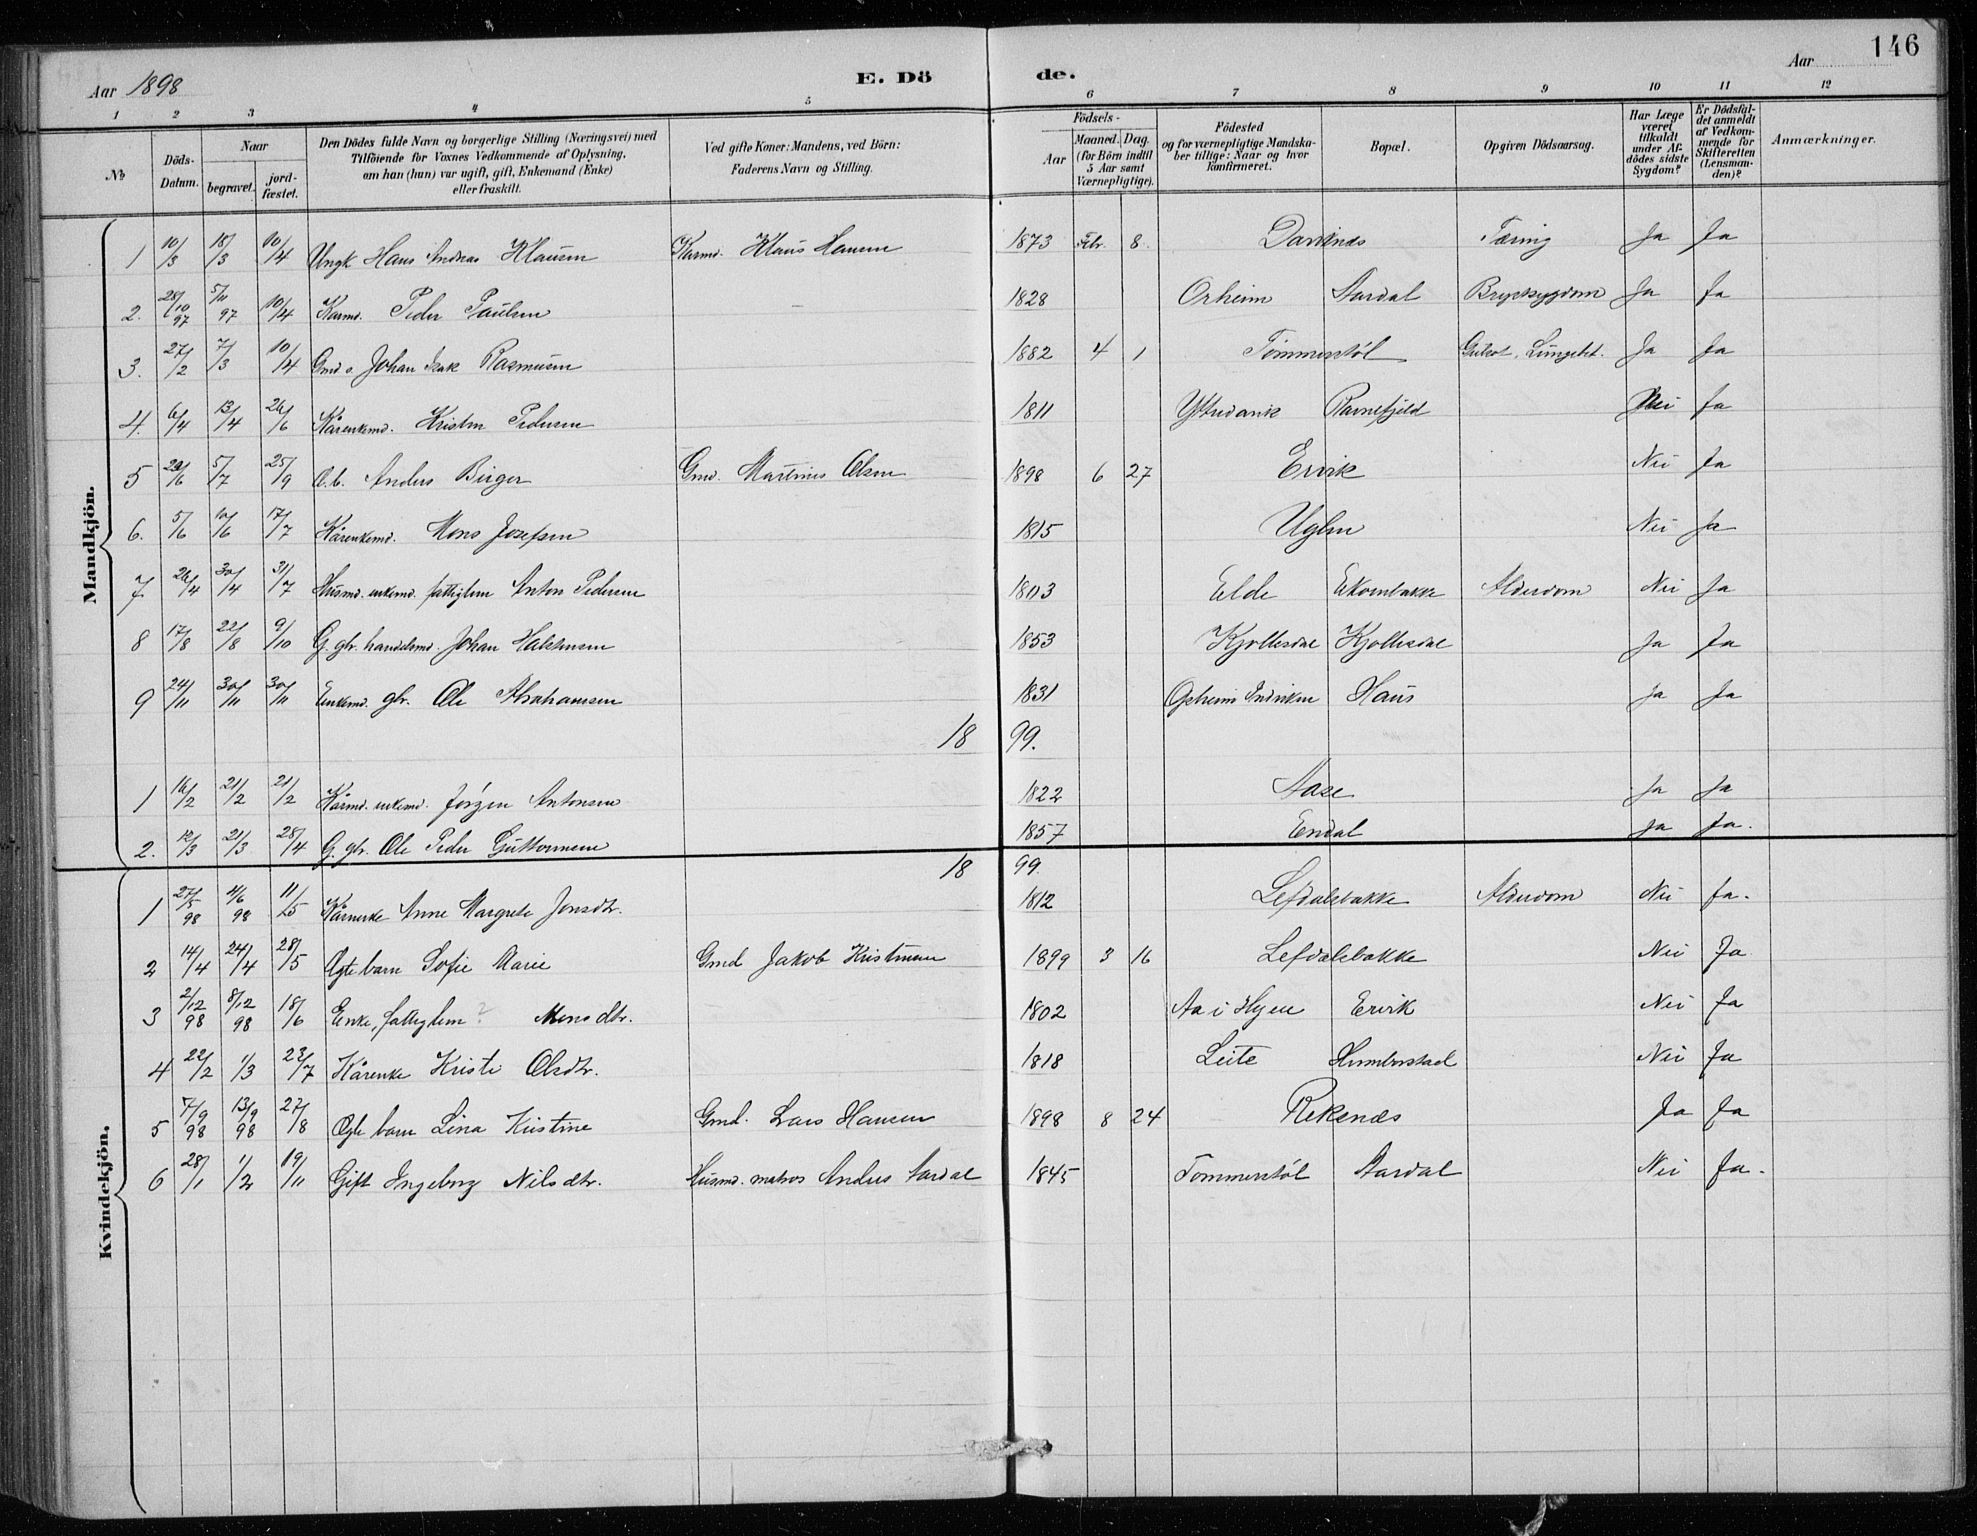 146
Aar 1898
E. Dö
de.
Aar
1 2 3 4 5 6 7 8 9 10 11 12
№
Döds-Datum.
Naar
begravet.
jord-fæstet.
Den Dödes fulde Navn og borgerlige Stilling (Næringsvei) med
Tilföiende for Voxnes Vedkommende af Oplysning,
om han (hun) var ugift, gift, Enkemand (Enke)
eller fraskilt.
Ved gifte Koner: Mandens, ved Börn:
Faderens Navn og Stilling.
Födsels-
Aar
Maaned. Dag.
(for Börn indtil
5 Aar samt
Værnepligtige).
Födested
og for værnepligtige Mandska-
ber tillige: Naar og hvor
konfirmeret.
Bopæl.
Opgiven Dödsaarsag.
Har Læge
været
tilkaldt
under Af-
dödes sidste
Sygdom?
Er Dödsfal-
det anmeldt
af Vedkom-
mende for
Skifteretten
(Lensman-
den)?
Anmærkninger.
Mandkjön.
1 10/3 18/3 10/4 Ungk Hans Andreas Klausen Kaarmd. Klaus Hansen 1873 Febr. 8. Daviknes Tæring Ja Ja
2. 28/10 97 5/11 97 10/4 Karmd. Peder Paulsen 1828 Orheim Aardal Brystsygdom Ja Ja
3. 27/2 7/3 10/4 Gmd s. Johan Isak Rasmusen 1882 4 1 Tömmerstöl Ja Ja
4. 6/4 13/4 26/6 Kårenkemd. Kristen Pedersen 1811 Ytredavik Ravnefjeld Nei Ja
5 29/6 5/7 25/9 Æ.b. Anders Birger Gmd. Martinus Olsen 1898 6 27 Ervik Nei Ja
6. 5/6 10/6 17/7 Kårenkemd. Mons Josefsen 1815 Uglen Nei Ja
7 26/4 30/4 31/7 Husmd. enkemd. fattiglem Anton Pedersen 1803 Elde Ekornbakke Alderdom Nei Ja
8 17/8 22/8 9/10 G. gbr. handelsmd. Johan Halstensen 1853 Kjøllesdal Kjøllesdal Ja Ja
9 24/11 30/11 30/11 Enkemd. gbr. Ole Abrahamsen 1831 Opheim Indviken Haus Ja Ja
18 99.
1 16/2 21/2 21/2 Kårmd. enkemd. Jørgen Antonsen 1822 Aase Ja Ja
2. 12/3 21/3 28/4 G. gbr. Ole Peder Guttormsen 1857 Endal Ja Ja.
Kvindekjön.
18 99.
1 27/5 98 4/6 98 11/25 Kårenke Anne Margrete Jonsdtr. 1812 Lefdalsbakke Alderdom Nei Ja.
2 14/4 24/4 28/5 Ægte barn Sofie Marie Gmd Jakob Kristensen 1899 3 16 Lefdalsbakke Nei Ja
3 2/12 98 8/12 98 18/6 Enke, fattiglem ? Monsdtr. 1802 Aa i Hyen Ervik Nei Ja
4 22/2 1/3 23/7 Kårenke Kristi Olsdtr. 1818 Leite Humborstad Nei Ja
5 7/9 98 13/9 98 27/8 Ægte barn Lina Kristine Gmd. Lars Hansen 1898 8 24 Rekenæs Ja Ja
6 28/1 1/2 19/11 Gift Ingeborg Nilsdtr. Husmd. matros Anders Aardal 1845 Tommerstöl Aardal Nei Ja.